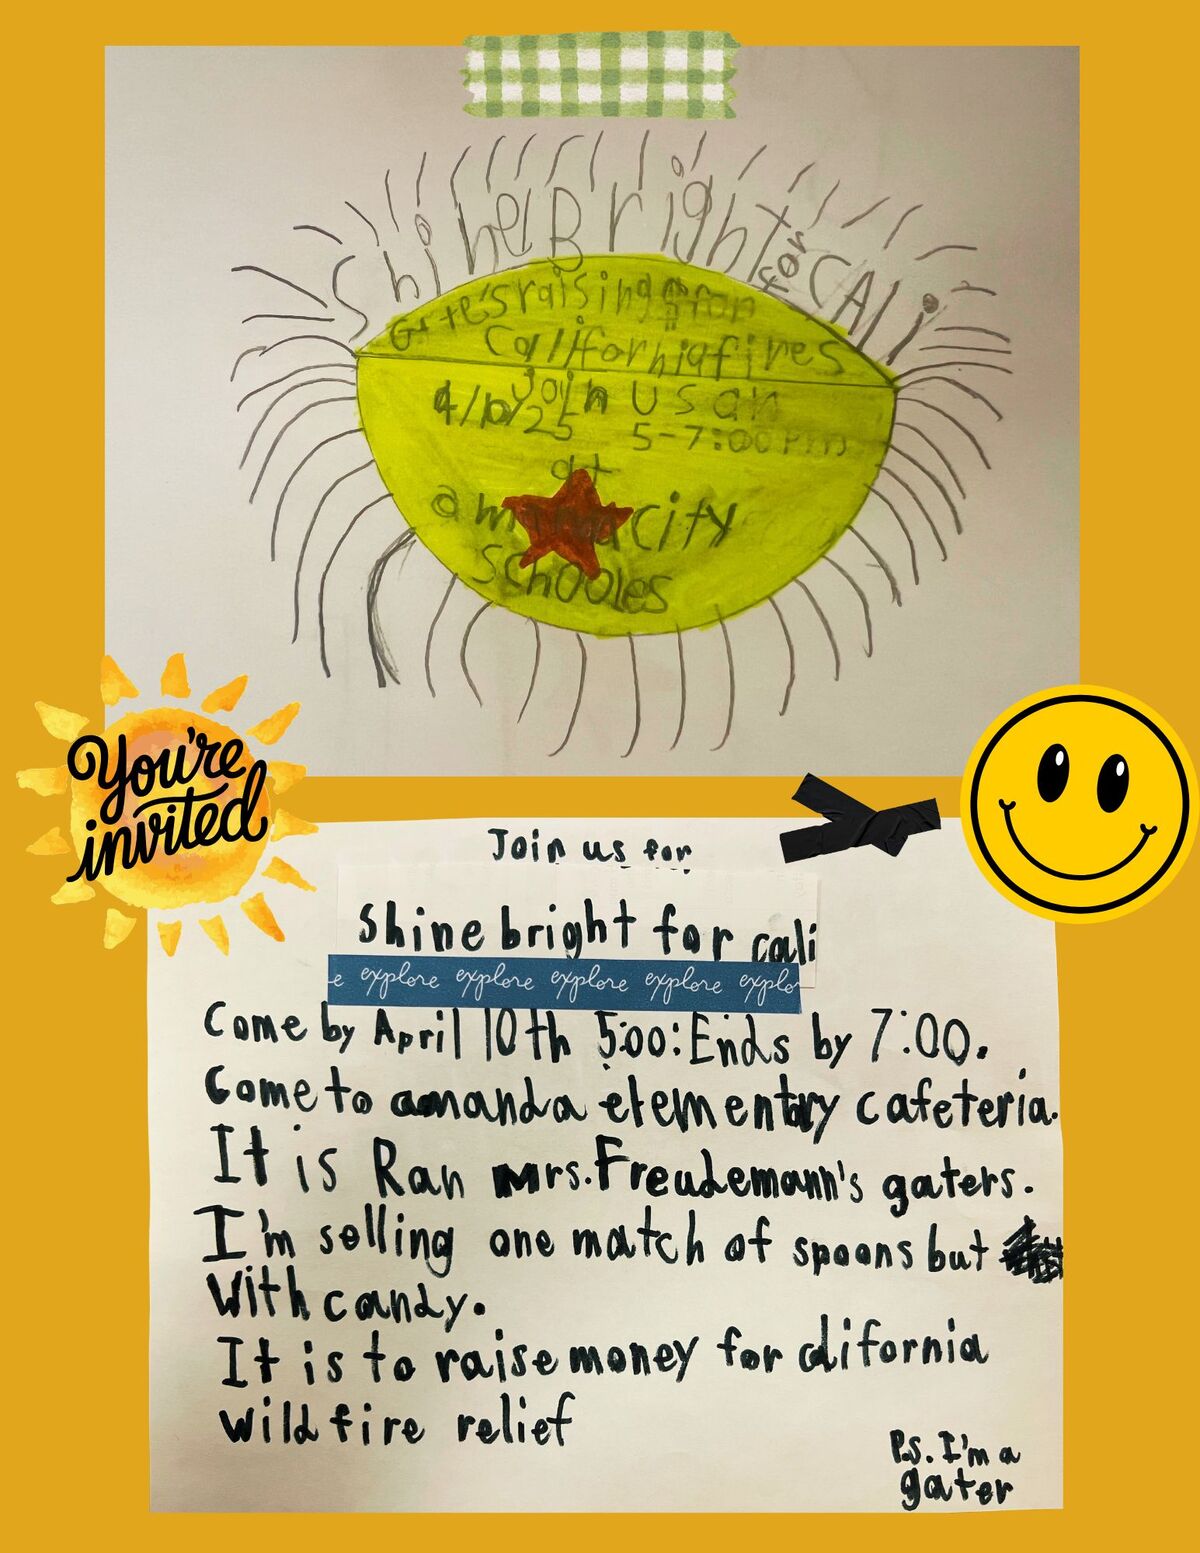 Shine Bright for CALi
Gate's raising for
California fires
Join us on
4/10/25 5-7:00 PM
at
amanda city
schooles
You're
invited
Join us for
shine bright for cali
e explore explore explore explore explo
Come by April 10th 5:00: Ends by 7:00.
Come to amanda elementary cafeteria.
It is Ran Mrs. Freudemann's gaters.
I'm selling one match of spoons but
with candy.
It is to raise money for california
wild fire relief
P.S. I'm a
gater